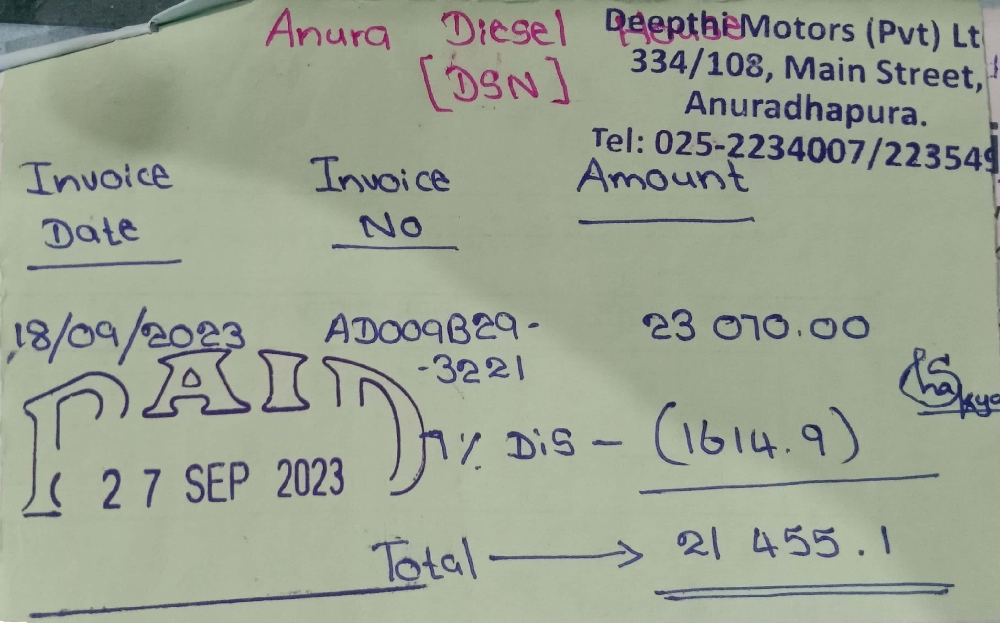 Anura Diesel
[DSN]
Deepthi Motors (Pvt) Lt
334/108, Main Street,
Anuradhapura.
Tel: 025-2234007/223549
Invoice Date
Invoice No
Amount
18/09/2023 AD009B29- 23 070.00
-3221
PAID
27 SEP 2023
7% DiS - (1614.9)
Total → 21 455.1